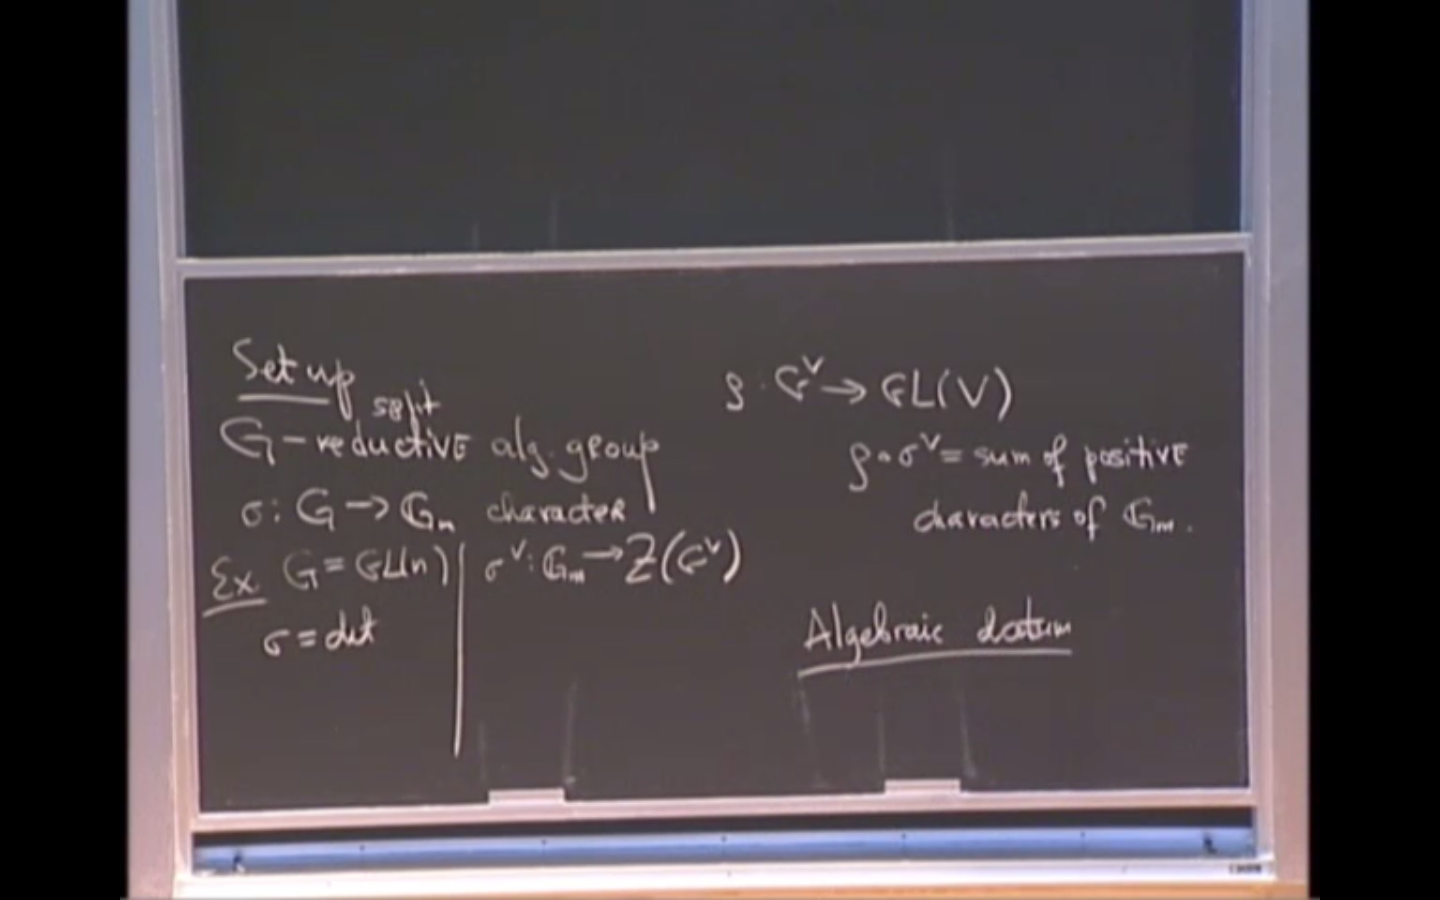 Set up
split
G - reductive alg. group
σ: G → 𝔾m character
Ex G = GL(n)
σ = det
σ^∨: 𝔾m → Z(G^∨)
ρ: G^∨ → GL(V)
ρ∘σ^∨ = sum of positive
characters of 𝔾m.
Algebraic datum